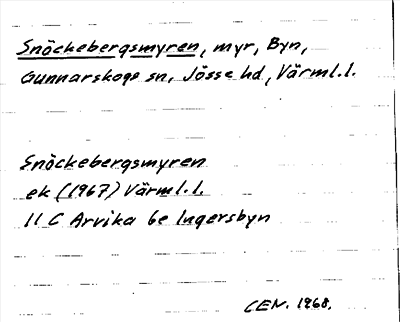 Snöckebergsmyren, myr, Byn,
Gunnarskogs sn, Jösse hd, Värml.l.
Snöckebergsmyren
ek (1967) Värml.l.
11 C Arvika 6e Ingersbyn
CEN. 1968.